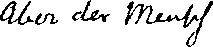 Aber der Mensch